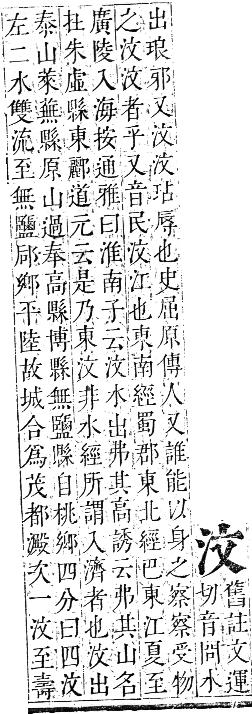 汶
舊註文運
切音問水
出琅邪又汶汶玷辱也史屈原傳人又誰能以身之察察受物
之汶汶者乎又音民汶江也東南經蜀郡東北經巴東江夏至
廣陵入海按通雅曰淮南子云汶水出弗其高誘云弗其山名
扗朱虛縣東酈道元云是乃東汶非水經所謂入濟者也汶出
泰山萊蕪縣原山過奉高縣博縣無鹽縣自桃鄉四分曰四汶
左二水雙流至無鹽郈鄉平陸故城合爲茂都澱次一汶至壽